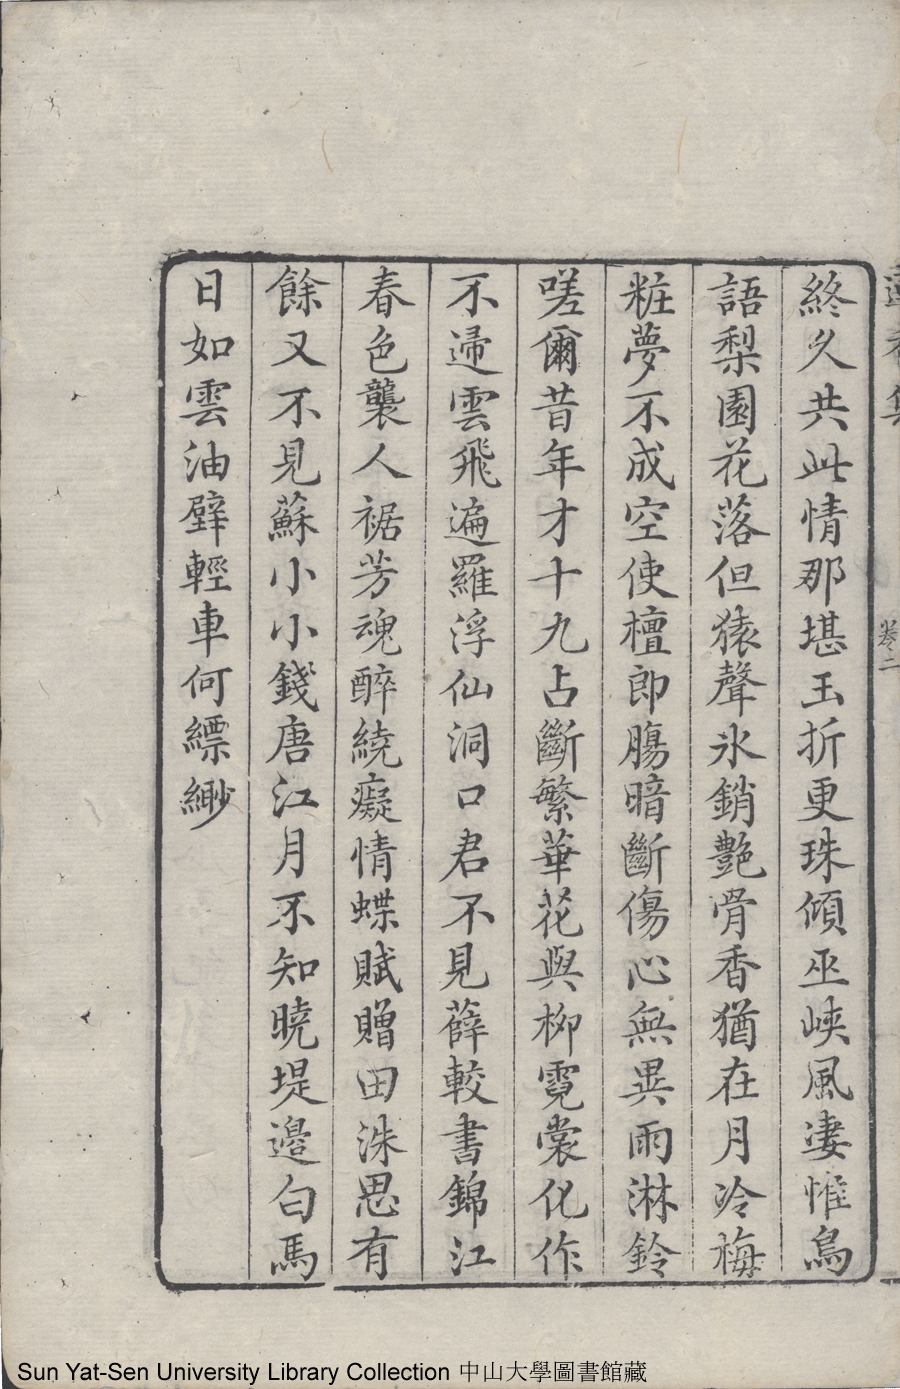 終久共此情那堪玉折更珠傾巫峽風凄惟鳥
語梨園花落但猿聲氷銷艶骨香猶在月冷梅
粧夢不成空使檀郎膓暗斷傷心無異雨淋鈴
嗟爾昔年才十九占斷繁華花與柳霓裳化作
不歸雲飛遍羅浮仙洞口君不見薛較書錦江
春色襲人裾芳魂醉繞癡情蝶賦贈田洙思有
餘又不見蘇小小錢唐江月不知曉堤邉白馬
日如雲油壁輕車何縹緲
卷二
Sun Yat-Sen University Library Collection 中山大學圖書館藏